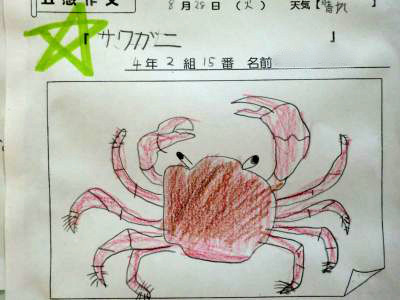 五感作文 8月28日 (火) 天気【晴れ】
「サワガニ」
4年2組15番 名前